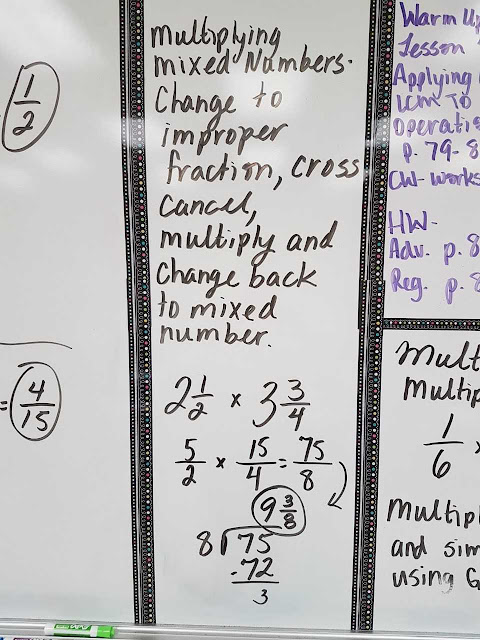 1/2
= 4/15
Multiplying
mixed Numbers.
Change to
improper
fraction, cross
cancel,
multiply and
Change back
to mixed
number.
2 1/2 × 3 3/4
5/2 × 15/4 = 75/8
9 3/8
8 75
-72
3
Warm Up
Lesson
Applying
LCM TO
p. 79-8
CW-
HW-
Adv. p. 8
Reg. p. 8
1/6
and
using G